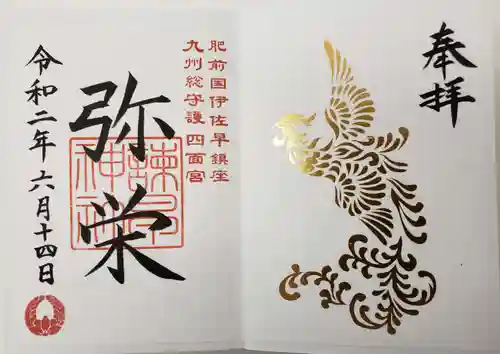 奉拝
肥前国伊佐早鎮座
九州総守護 四面宮
弥栄
諫早神社
令和二年六月十四日